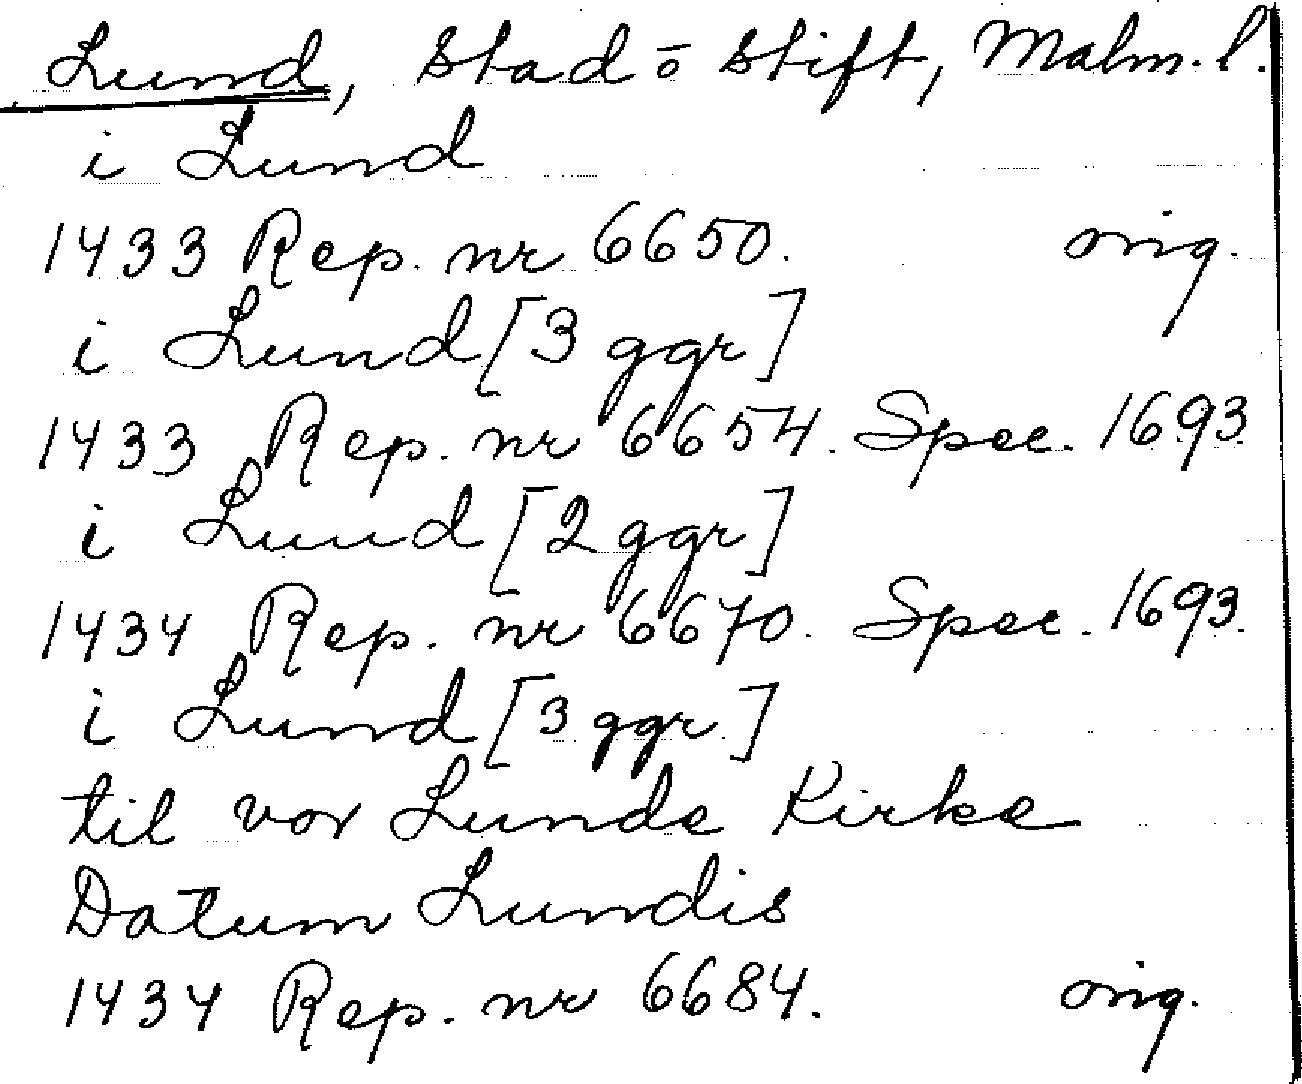 Lund, Stad o Stift, Malm. l.
i Lund
1433 Rep. nr 6650. orig.
i Lund [3 ggr]
1433 Rep. nr 6654. Spec. 1693.
i Lund [2 ggr]
1434 Rep. nr 6670. Spec. 1693.
i Lund [3 ggr]
til vor Lunde Kirke
Datum Lundis
1434 Rep. nr 6684. orig.